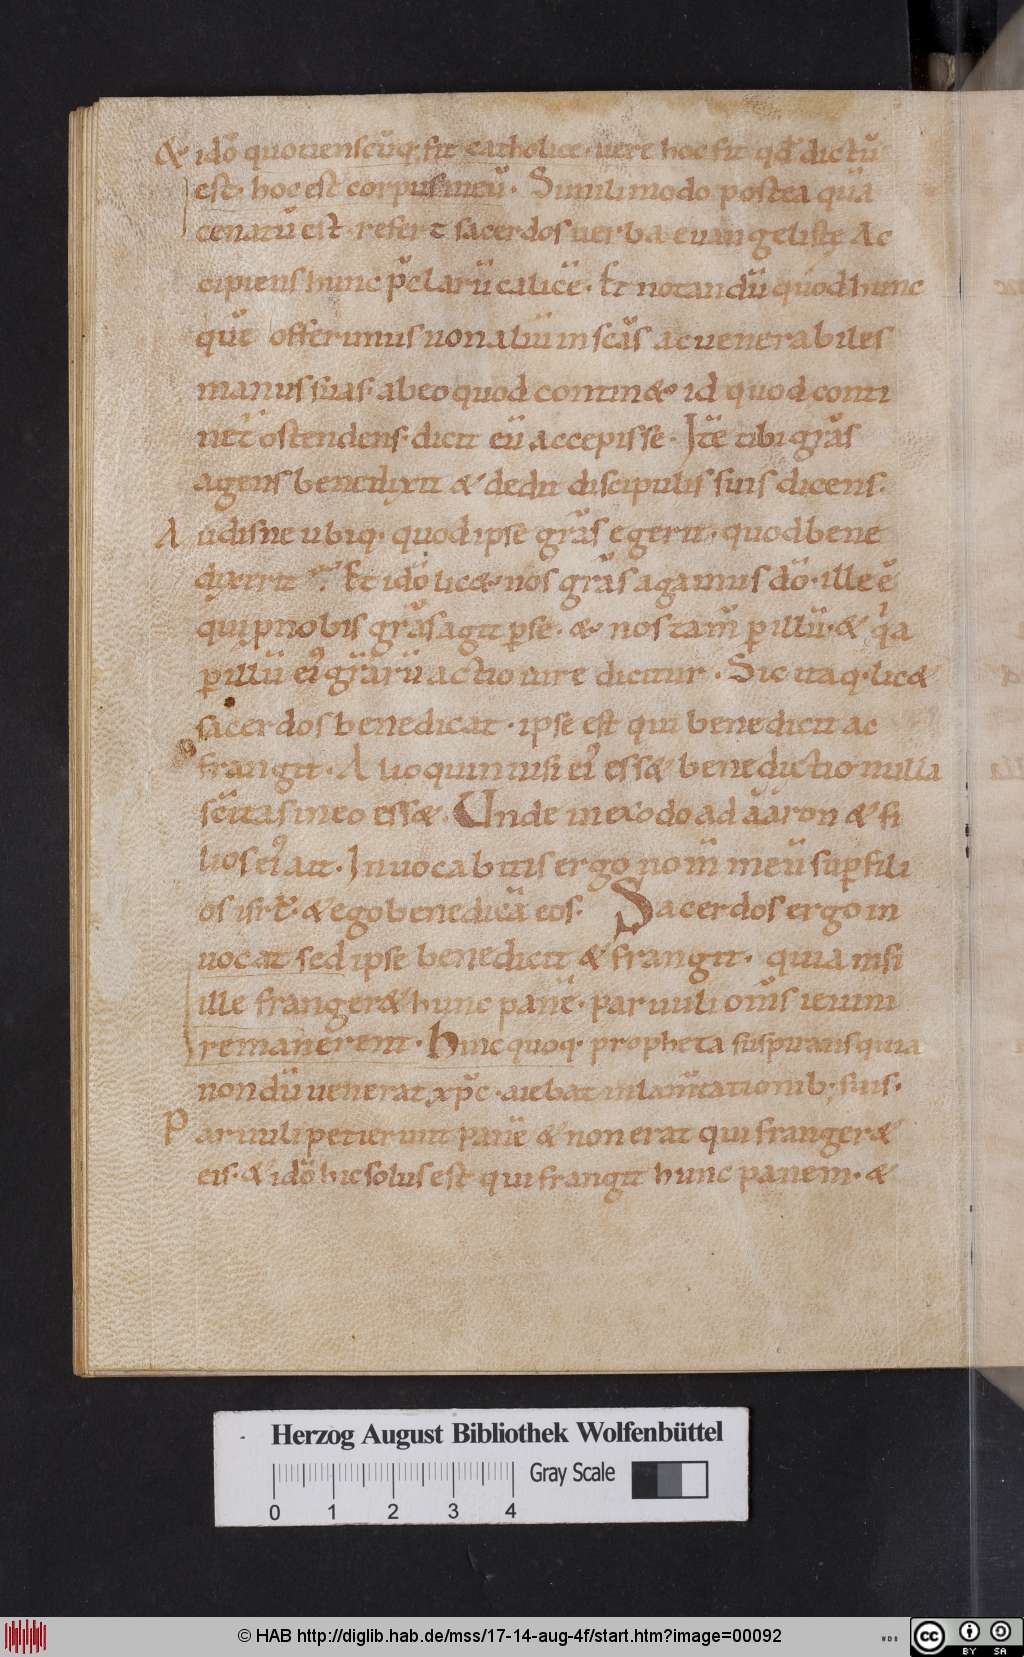 & idō quotienscūq; fit catholice· uere hoc fit qd̄ dictū
est· hoc est corpus meū· Simili modo postea quā
cenatū est· refert sacerdos uerba euangelistę Ac
cipiens hunc p̄clarū calicē· Et notandū quod hunc
quē offerimus non aliū in scās ac uenerabiles
manus suas· ab eo quod contin&· id quod conti
net ostendens· dicit eū accepisse· Itē tibi grās
agens benedixit & dedit discipulis suis dicens·
Audisne ubiq· quod ipse grās egerit· quod bene
dixerit? Et idō lic&· nos grās agamus dō· ille ē
qui pnobis grās agit p se· &· nos tam̄ p illū· & qia
p illū ei' grārū actio iure dicitur· Sic itaq· lic&
sacerdos benedicat· ipse est qui benedicit ac
frangit· Alioquin nisi ei' ess& benedictio nulla
scītas in eo ess&· Unde in exodo ad aaron & fi
lios ei' ait· Inuocabitis ergo nom̄ meū sup fili
os isrł· & ego benedicā eos· Sacerdos ergo in
uocat sed ipse benedicit & frangit· quia nisi
ille franger& hunc panē· paruuli om̄s ieiuni
remanerent· Hinc quoq· propheta suspirans quia
nondū uenerat xp̄c· aiebat in lam̄tationib; suis·
Paruuli petierunt panē & non erat qui franger&
eis· & idō hic solus est qui frangit hunc panem· &
Herzog August Bibliothek Wolfenbüttel
0 1 2 3 4 Gray Scale
© HAB http://diglib.hab.de/mss/17-14-aug-4f/start.htm?image=00092
WDB
cc BY SA